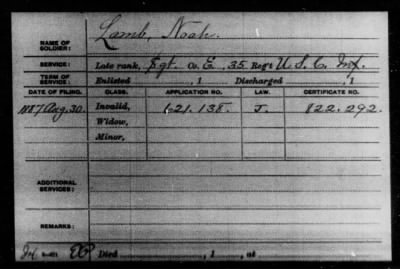 NAME OF SOLDIER: Lamb, Noah.
SERVICE: Late rank, Sgt. Co. E, 35 Regt U. S. C. Inf.
TERM OF SERVICE: Enlisted , 1 Discharged , 1
DATE OF FILING. CLASS. APPLICATION NO. LAW. CERTIFICATE NO.
1887 Aug. 30. Invalid, 621.138. J. 822.292.
Widow,
Minor,
ADDITIONAL SERVICES:
REMARKS:
Died , 1 , at